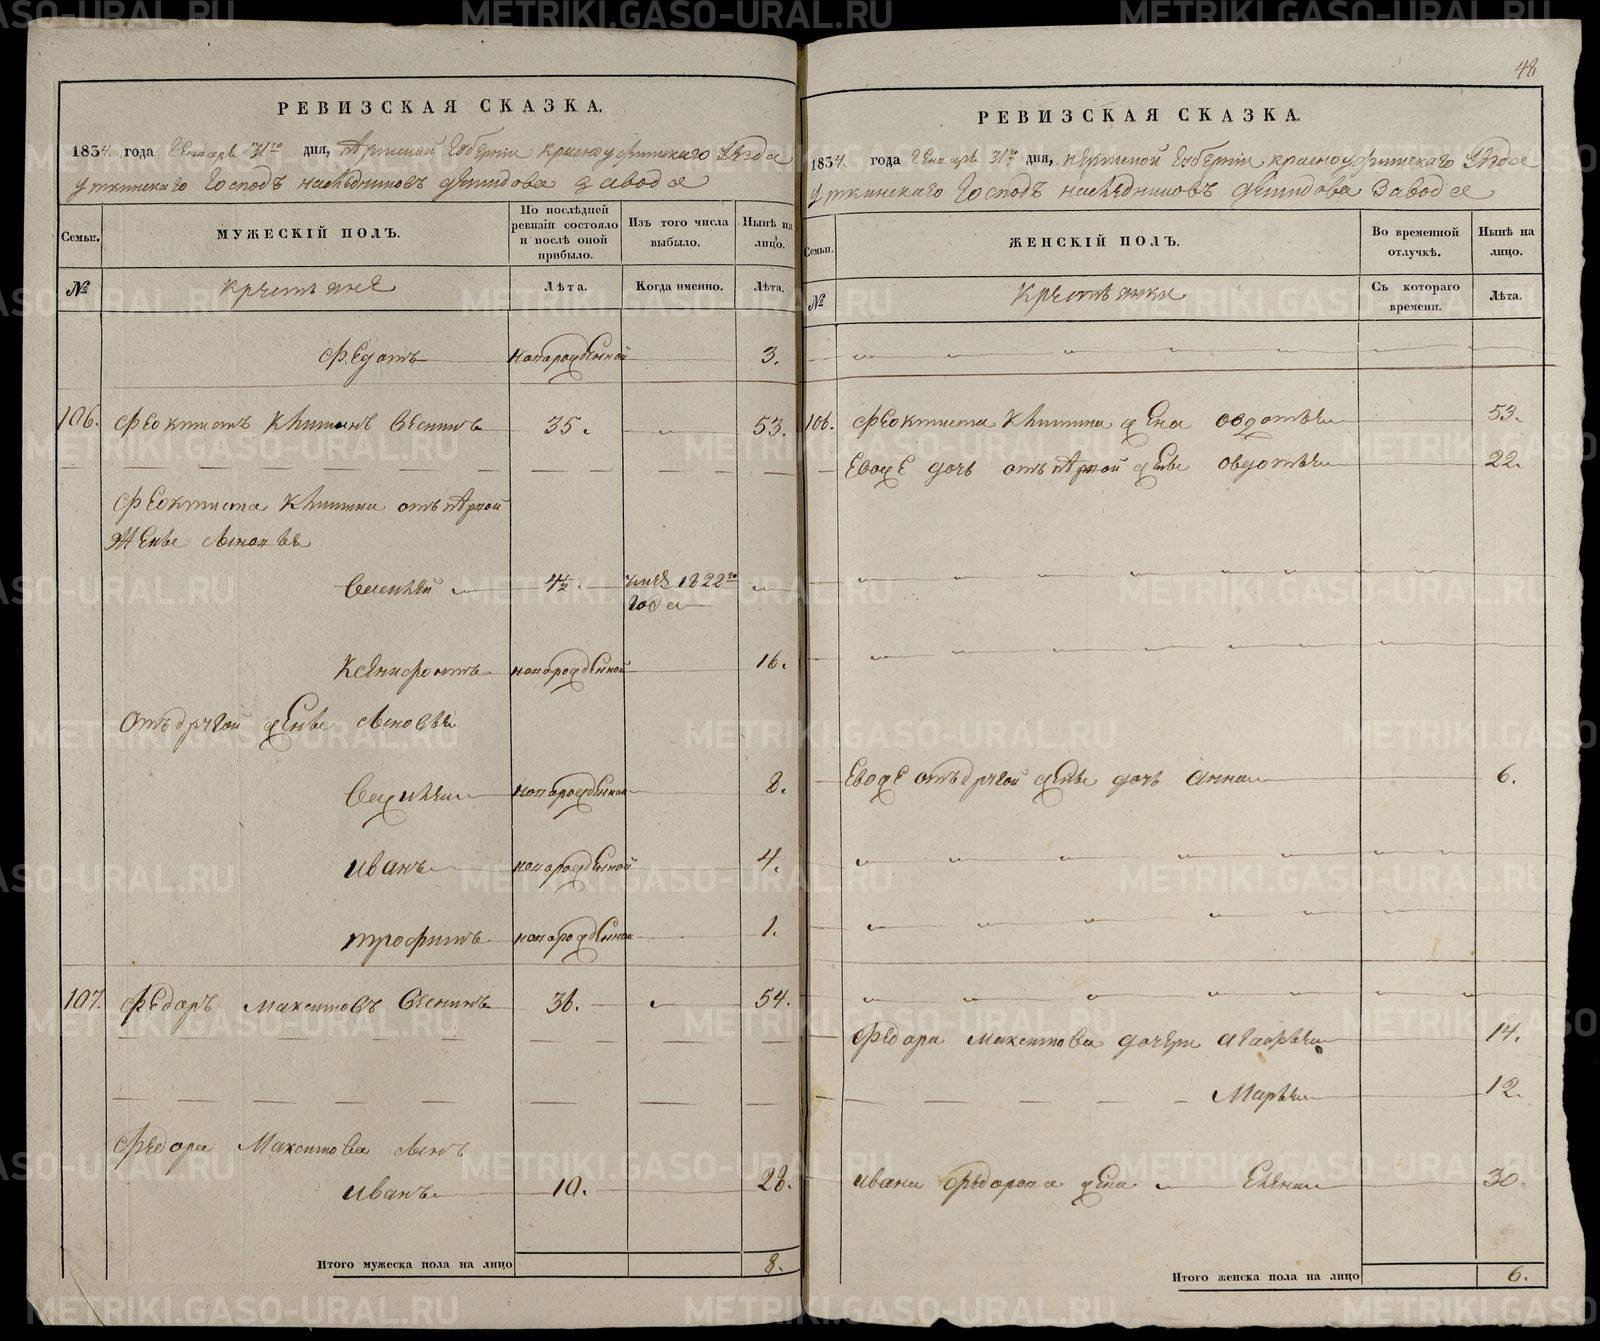 48
РЕВИЗСКАЯ СКАЗКА.
1834. года Генваря 31го дня, Пермской Губернии Красноуфимскаго Уезда
Уткинскаго Господъ наследниковъ Демидова Завода
Семьи.
МУЖЕСКІЙ ПОЛЪ.
По послѣдней ревизіи состояло и послѣ оной прибыло.
Изъ того числа выбыло.
Нынѣ на лицо.
№
Крестьяне
Лѣта.
Когда именно.
Лѣта.
Федотъ новорожденной 3.
106. Феоктистъ 35. 53.
Феоктиста отъ первой
жены сыновья
4½. 1822го
года
Ксенифонтъ новорожденной 16.
Отъ другой жены сыновья
новорожденной 8.
Иванъ новорожденной 4.
Трофимъ новорожденной 1.
107. Федоръ Максимовъ 36. 54.
Федора Максимова сынъ
Иванъ 10. 28.
Итого мужеска пола на лицо 8.
РЕВИЗСКАЯ СКАЗКА.
1834. года Генваря 31го дня, Пермской Губернии Красноуфимскаго Уезда
Уткинскаго Господъ наследниковъ Демидова Завода
Семьи.
ЖЕНСКІЙ ПОЛЪ.
Во временной отлучкѣ.
Нынѣ на лицо.
№
Крестьянки
Съ котораго времени.
Лѣта.
106. Феоктиста жена Овдотья 53.
Евоже дочь отъ первой жены Овдотья 22.
Евоже отъ другой жены дочь Анна 6.
Федора Максимова дочери Агафья 14.
Марья 12.
Ивана Федорова жена Елена 30.
Итого женска пола на лицо 6.
METRIKI.GASO-URAL.RU